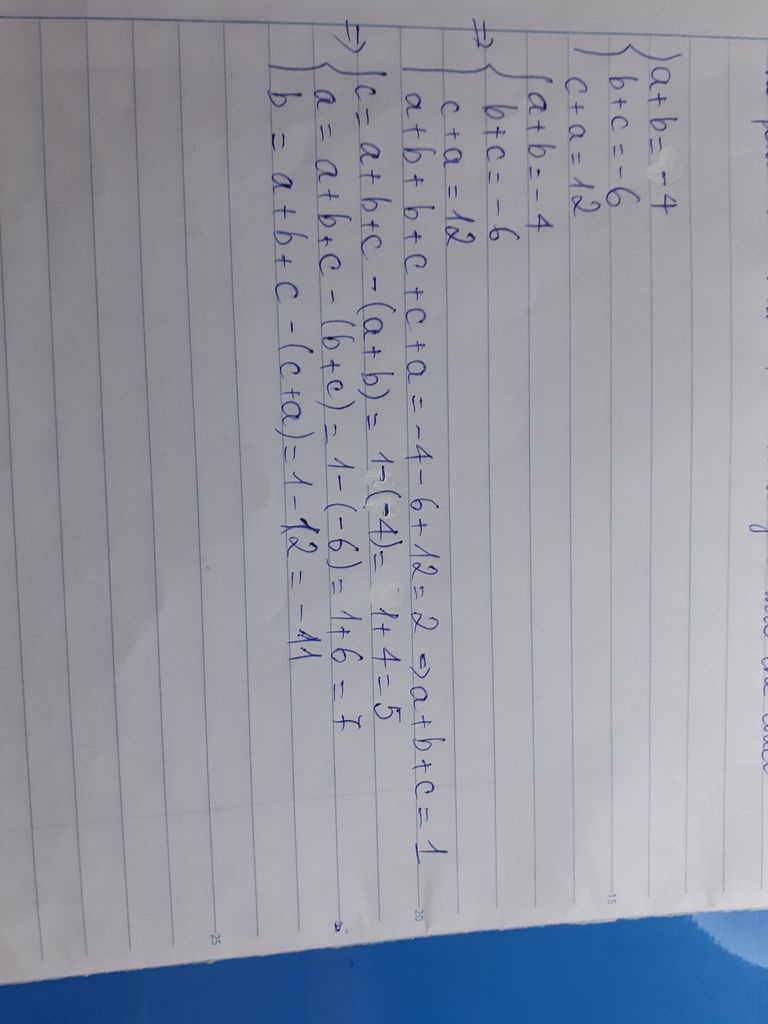 a+b= -4
b+c=-6
c+a=12
=> a+b=-4
b+c=-6
c+a=12
a+b+b+c+c+a=-4-6+12=2 => a+b+c=1
=> c=a+b+c-(a+b)=1-(-4)=1+4=5
a=a+b+c-(b+c)=1-(-6)=1+6=7
b=a+b+c-(c+a)=1-12=-11
15
20
25